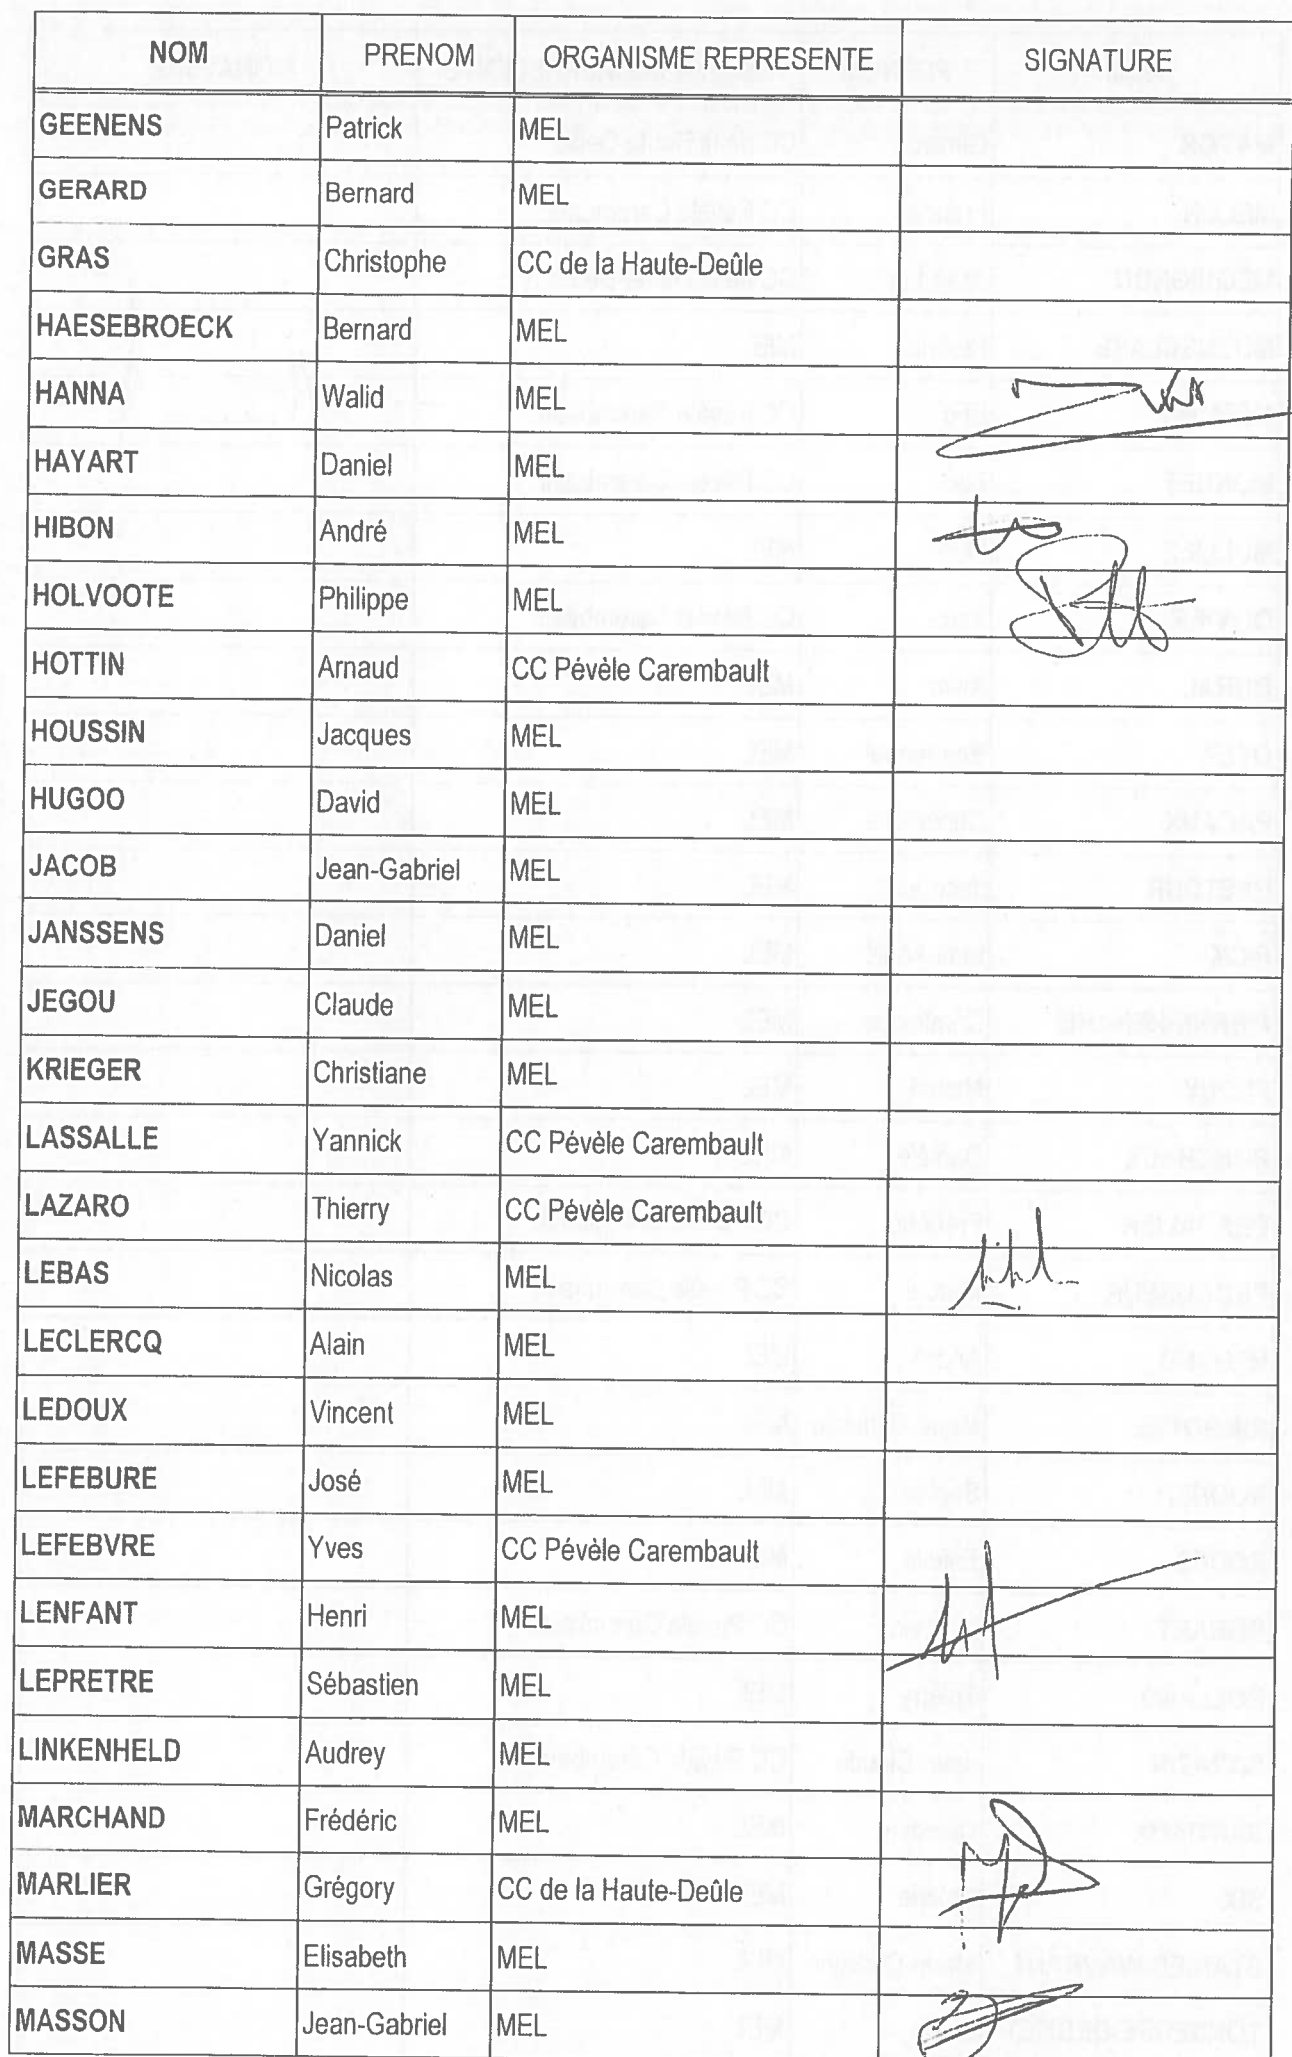 NOM PRENOM ORGANISME REPRESENTE SIGNATURE
GEENENS Patrick MEL
GERARD Bernard MEL
GRAS Christophe CC de la Haute-Deûle
HAESEBROECK Bernard MEL
HANNA Walid MEL
HAYART Daniel MEL
HIBON André MEL
HOLVOOTE Philippe MEL
HOTTIN Arnaud CC Pévèle Carembault
HOUSSIN Jacques MEL
HUGOO David MEL
JACOB Jean-Gabriel MEL
JANSSENS Daniel MEL
JEGOU Claude MEL
KRIEGER Christiane MEL
LASSALLE Yannick CC Pévèle Carembault
LAZARO Thierry CC Pévèle Carembault
LEBAS Nicolas MEL
LECLERCQ Alain MEL
LEDOUX Vincent MEL
LEFEBURE José MEL
LEFEBVRE Yves CC Pévèle Carembault
LENFANT Henri MEL
LEPRETRE Sébastien MEL
LINKENHELD Audrey MEL
MARCHAND Frédéric MEL
MARLIER Grégory CC de la Haute-Deûle
MASSE Elisabeth MEL
MASSON Jean-Gabriel MEL